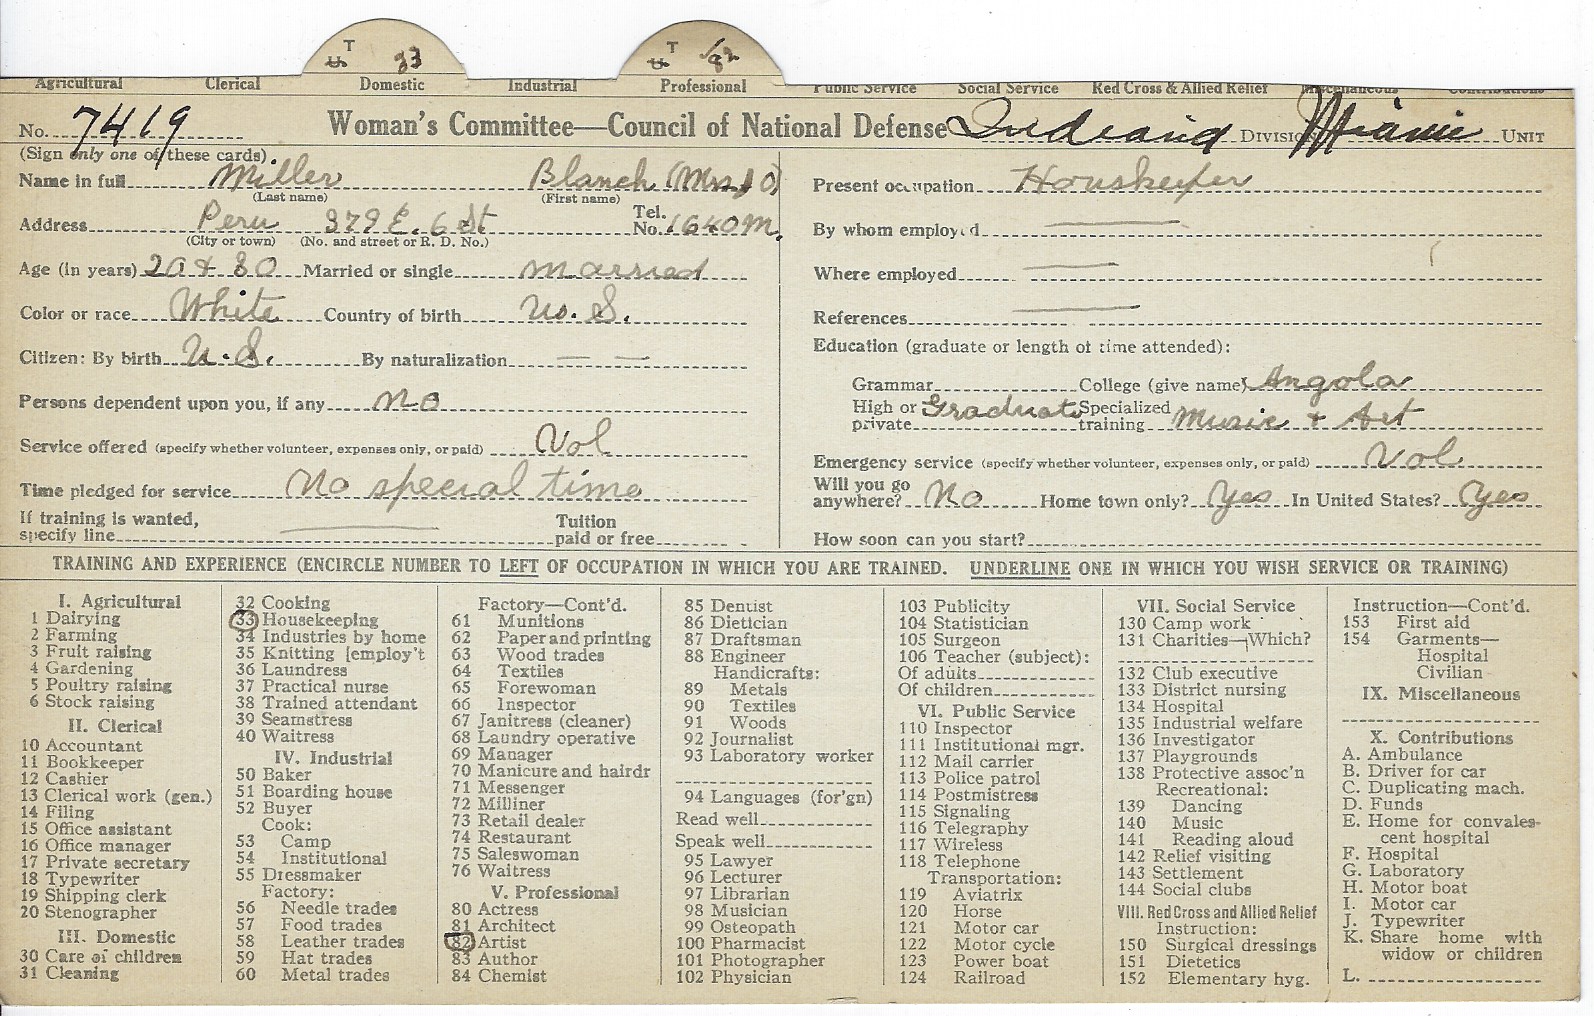 T 33 T 82
Agricultural Clerical Domestic Industrial Professional Public Service Social Service Red Cross & Allied Relief Miscellaneous Contributions
No. 7419 Woman's Committee—Council of National Defense Indiana Division Miami Unit
(Sign only one of these cards)
Name in full Miller Blanch (Mrs J O)
(Last name) (First name)
Address Peru 379 E. 6 St Tel. No. 1640 M.
(City or town) (No. and street or R. D. No.)
Age (in years) 20 & 30 Married or single married
Color or race White Country of birth U. S.
Citizen: By birth U. S. By naturalization — —
Persons dependent upon you, if any no
Service offered (specify whether volunteer, expenses only, or paid) Vol
Time pledged for service No special time
If training is wanted, specify line Tuition paid or free
Present occupation Houskeeper
By whom employed
Where employed
References
Education (graduate or length of time attended):
Grammar College (give name) Angola
High or private Graduate Specialized training Music & Art
Emergency service (specify whether volunteer, expenses only, or paid) Vol
Will you go anywhere? No Home town only? Yes In United States? Yes
How soon can you start?
TRAINING AND EXPERIENCE (ENCIRCLE NUMBER TO LEFT OF OCCUPATION IN WHICH YOU ARE TRAINED. UNDERLINE ONE IN WHICH YOU WISH SERVICE OR TRAINING)
I. Agricultural
1 Dairying
2 Farming
3 Fruit raising
4 Gardening
5 Poultry raising
6 Stock raising
II. Clerical
10 Accountant
11 Bookkeeper
12 Cashier
13 Clerical work (gen.)
14 Filing
15 Office assistant
16 Office manager
17 Private secretary
18 Typewriter
19 Shipping clerk
20 Stenographer
III. Domestic
30 Care of children
31 Cleaning
32 Cooking
33 Housekeeping
34 Industries by home
35 Knitting [employ't
36 Laundress
37 Practical nurse
38 Trained attendant
39 Seamstress
40 Waitress
IV. Industrial
50 Baker
51 Boarding house
52 Buyer
Cook:
53 Camp
54 Institutional
55 Dressmaker
Factory:
56 Needle trades
57 Food trades
58 Leather trades
59 Hat trades
60 Metal trades
Factory—Cont'd.
61 Munitions
62 Paper and printing
63 Wood trades
64 Textiles
65 Forewoman
66 Inspector
67 Janitress (cleaner)
68 Laundry operative
69 Manager
70 Manicure and hairdr
71 Messenger
72 Milliner
73 Retail dealer
74 Restaurant
75 Saleswoman
76 Waitress
V. Professional
80 Actress
81 Architect
82 Artist
83 Author
84 Chemist
85 Dentist
86 Dietician
87 Draftsman
88 Engineer
Handicrafts:
89 Metals
90 Textiles
91 Woods
92 Journalist
93 Laboratory worker
94 Languages (for'gn)
Read well
Speak well
95 Lawyer
96 Lecturer
97 Librarian
98 Musician
99 Osteopath
100 Pharmacist
101 Photographer
102 Physician
103 Publicity
104 Statistician
105 Surgeon
106 Teacher (subject):
Of adults
Of children
VI. Public Service
110 Inspector
111 Institutional mgr.
112 Mail carrier
113 Police patrol
114 Postmistress
115 Signaling
116 Telegraphy
117 Wireless
118 Telephone
Transportation:
119 Aviatrix
120 Horse
121 Motor car
122 Motor cycle
123 Power boat
124 Railroad
VII. Social Service
130 Camp work
131 Charities—Which?
132 Club executive
133 District nursing
134 Hospital
135 Industrial welfare
136 Investigator
137 Playgrounds
138 Protective assoc'n
Recreational:
139 Dancing
140 Music
141 Reading aloud
142 Relief visiting
143 Settlement
144 Social clubs
VIII. Red Cross and Allied Relief
Instruction:
150 Surgical dressings
151 Dietetics
152 Elementary hyg.
Instruction—Cont'd.
153 First aid
154 Garments—
Hospital
Civilian
IX. Miscellaneous
X. Contributions
A. Ambulance
B. Driver for car
C. Duplicating mach.
D. Funds
E. Home for convales-
cent hospital
F. Hospital
G. Laboratory
H. Motor boat
I. Motor car
J. Typewriter
K. Share home with
widow or children
L.